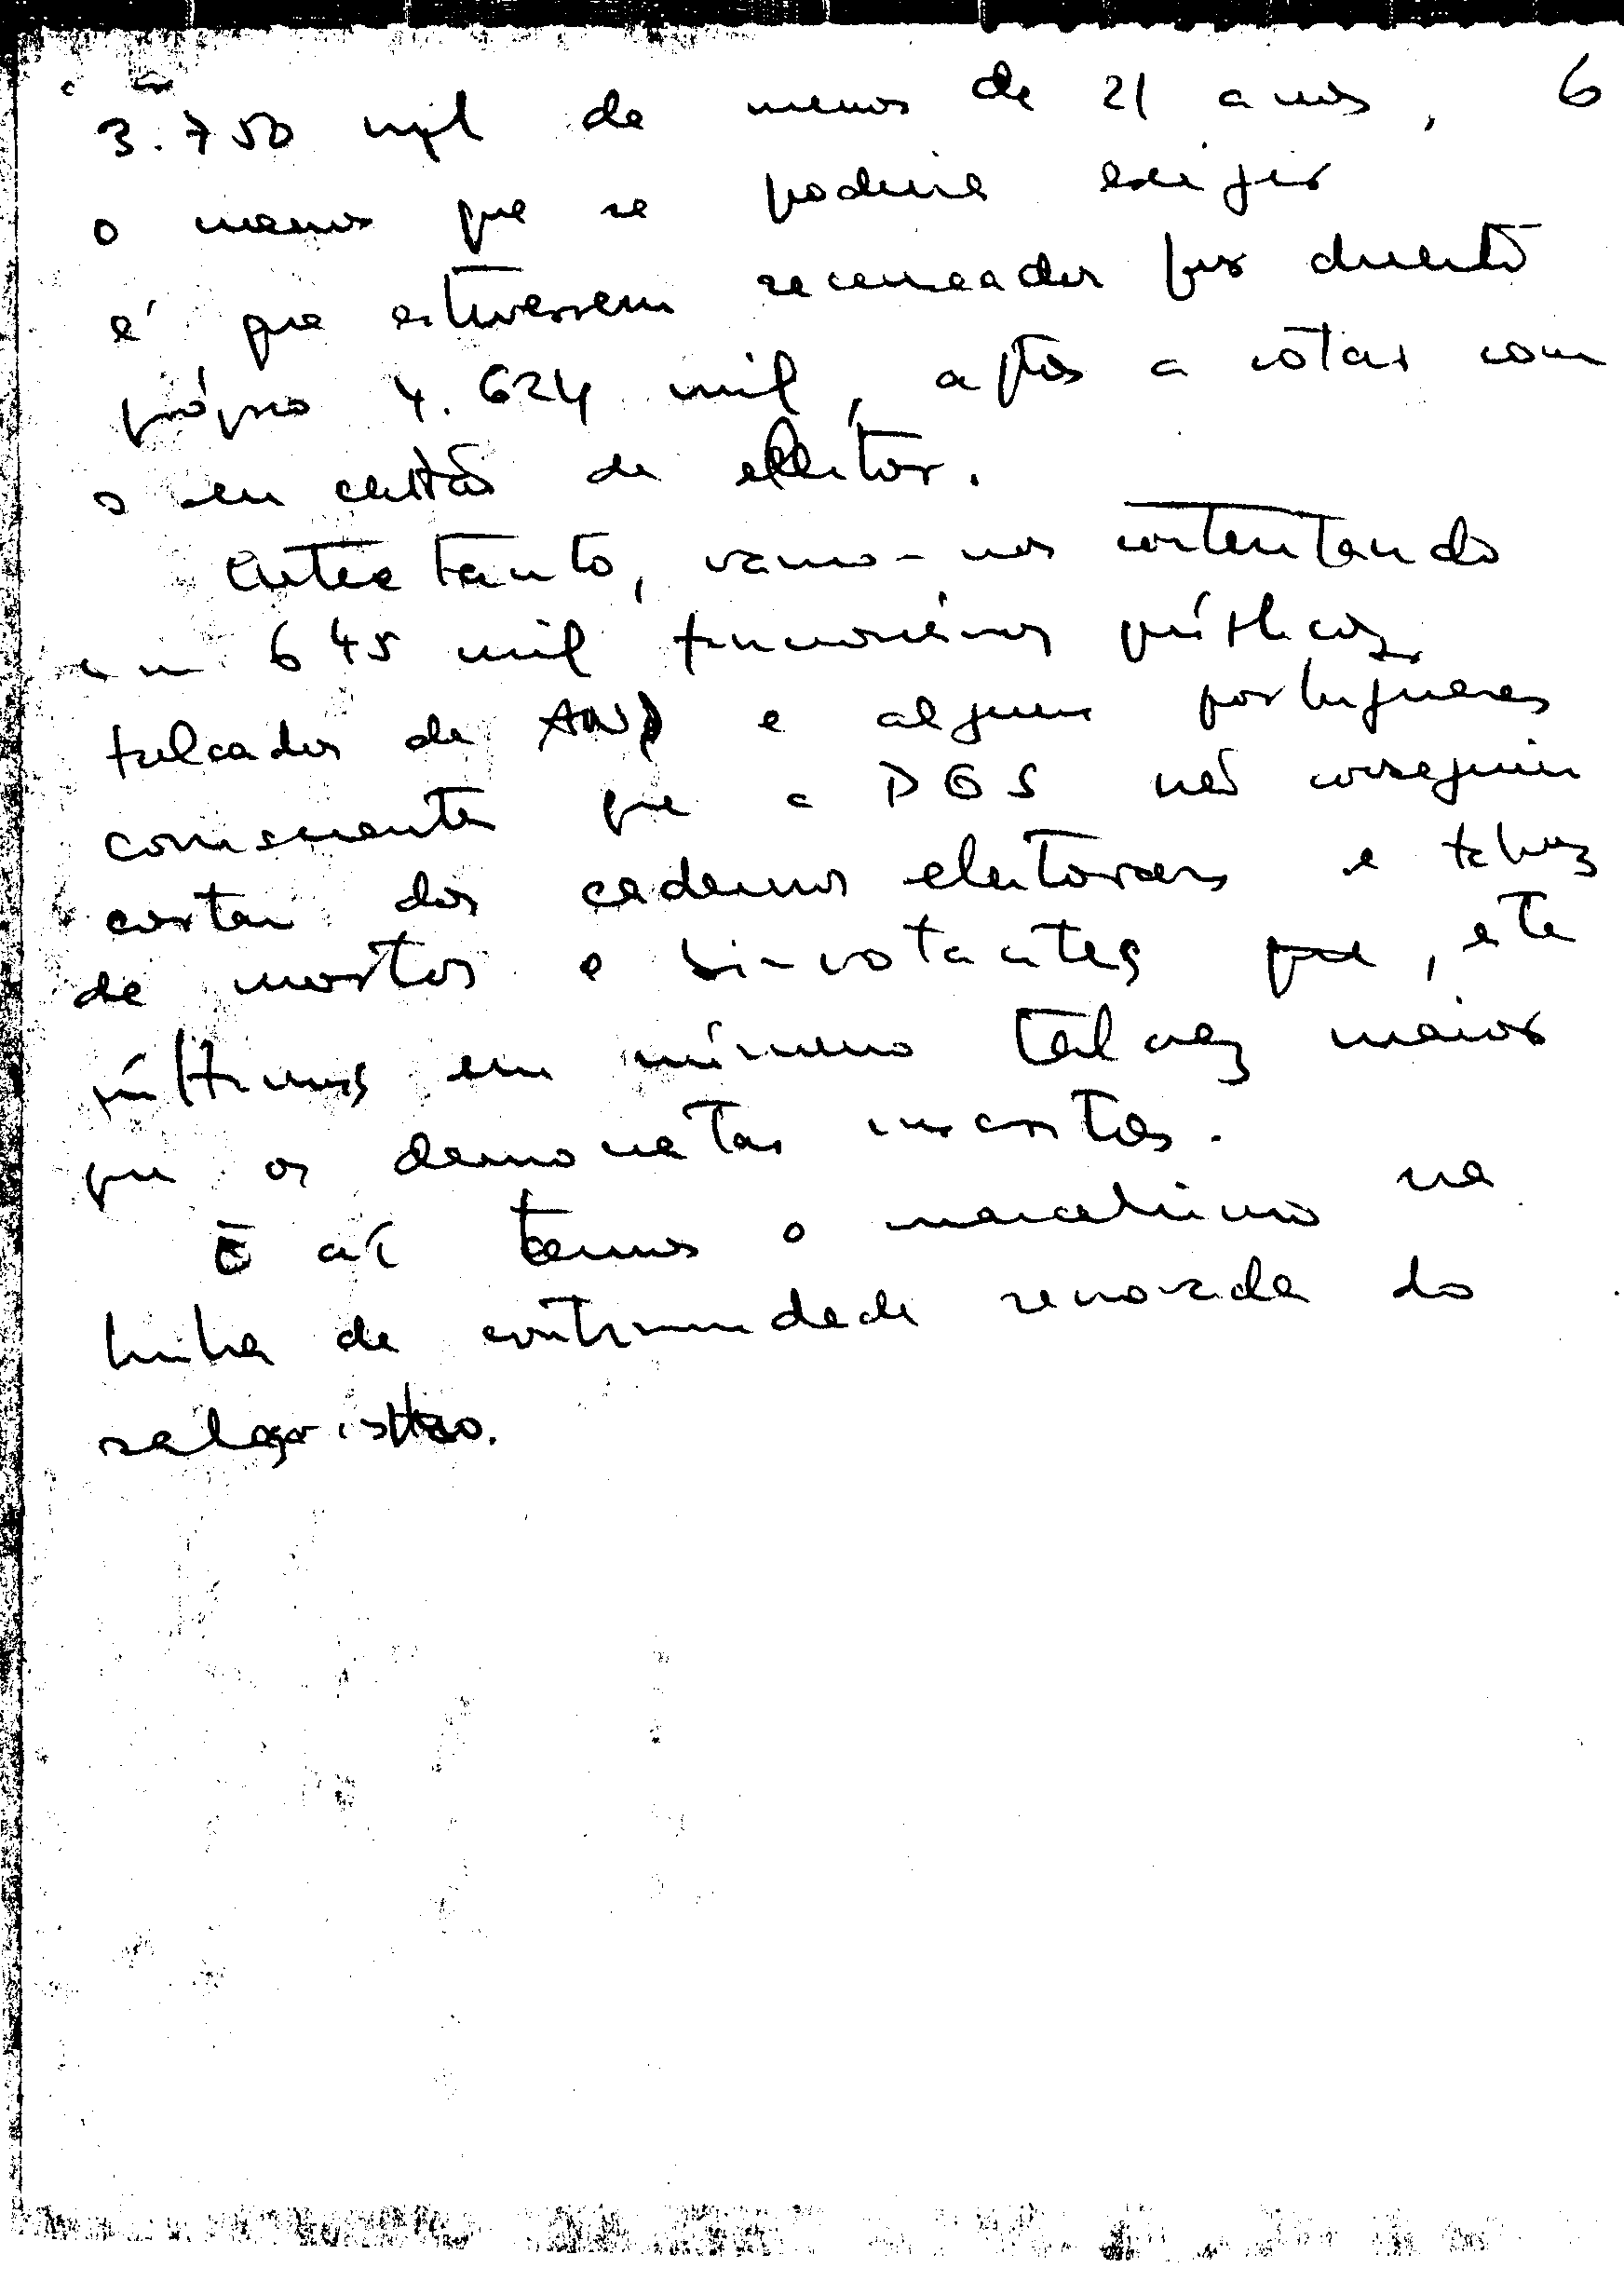 6
3.750 mil de menos de 21 anos,
o menos que se poderia exigir
é que estivessem recenseados por direito
próprio 4.624 mil, aptos a votar com
o seu cartão de eleitor.
Entretanto, vamo-nos contentando
em 645 mil funcionários públicos,
fulcados da ANP e alguns portugueses
conscientes que a DGS não conseguiu
cortar dos cadernos eleitorais e talvez
de mortos e bi-votantes que, este
últimos em número talvez maior
que os democratas inscritos.
E aí temos o marcelismo na
linha de continuidade renovada do
salazarismo.